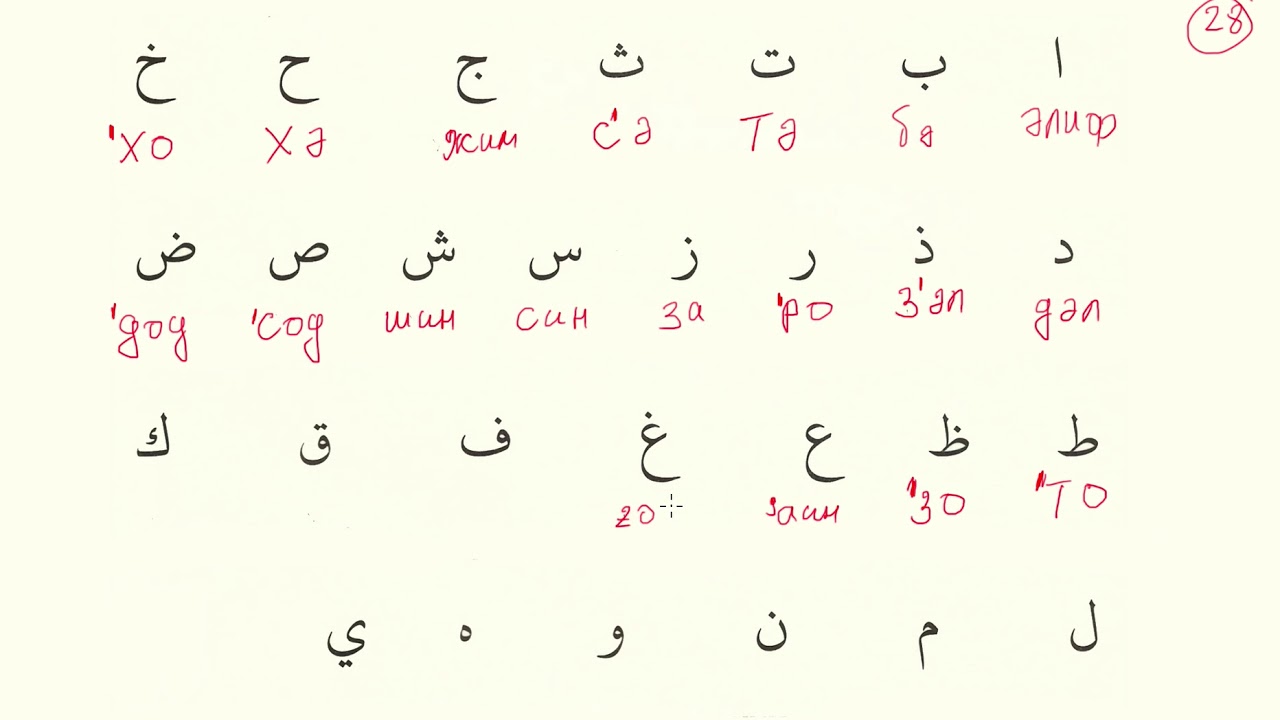 28
ا ب ت ث ج ح خ
әлиф бә тә с'ә жим хә 'хо
د ذ ر ز س ش ص ض
дәл з'әл 'ро за син шин 'сод 'дод
ط ظ ع غ ف ق ك
"то 'зо заин го
ل م ن و ه ي